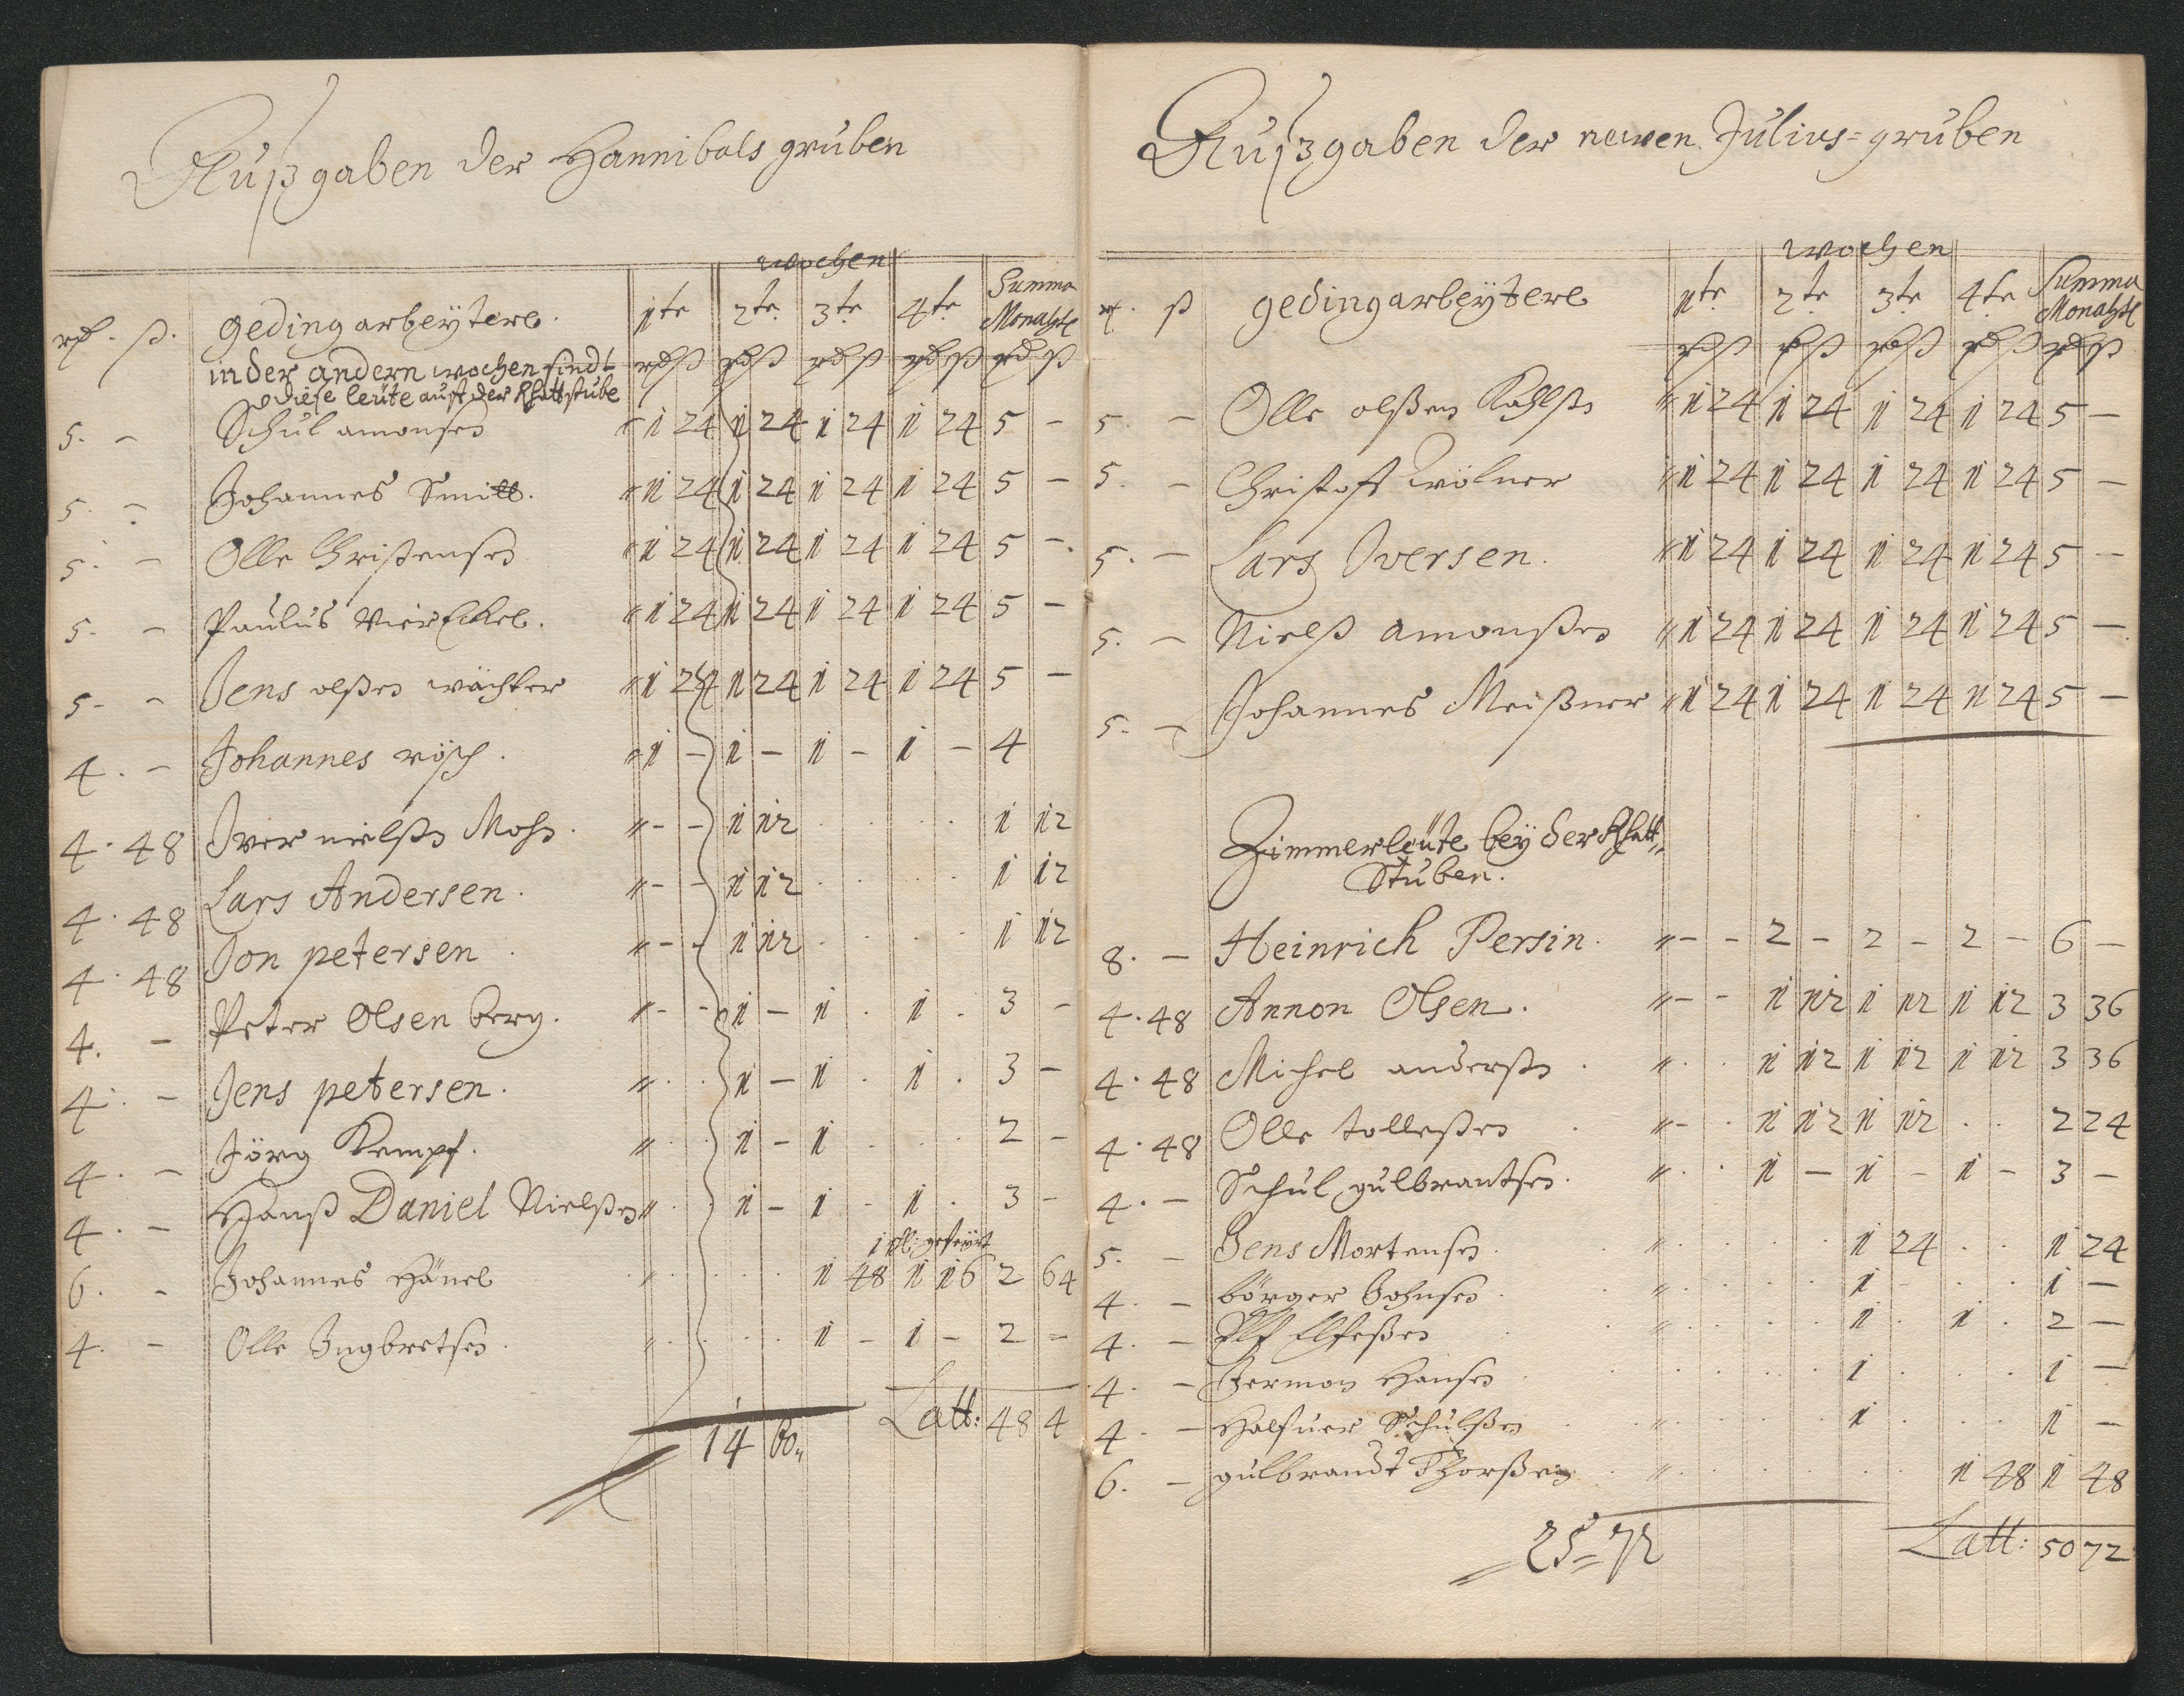 Außgaben der Hannibals gruben
wochen
rd. ß. gedingarbeÿtere. 1te 2te 3te 4te Summa Monahtl
in der andern wochen sindt rdß rdß rdß rdß rdß
diese leüte auß der Rhattstube
5. - Schul amonsen " 1 24 1 24 1 24 1 24 5 -
5. - Johannes Smitt. " 1 24 1 24 1 24 1 24 5 -
5. - Olle Christensen " 1 24 1 24 1 24 1 24 5 -
5. - Paulus Vier " 1 24 1 24 1 24 1 24 5 -
5. - Jens olßen wächter " 1 24 1 24 1 24 1 24 5 -
4. - Johannes rösch. " 1 - 1 - 1 - 1 - 4
4. 48 Iver nielßen Mohn. " - - 1 12 . . . . 1 12
4. 48 Lars Andersen. " - - 1 12 . . . . 1 12
4. 48 Jon petersen. " - - 1 12 . . . . 1 12
4. - Peter Olsen berg. " - - 1 - 1 . 1 . 3 -
4. - Jens petersen. " . . 1 - 1 . 1 . 3 -
4. - Jörg Kempf. " . . 1 - 1 . . . 2 -
4. - Hanß Daniel Nielßen " . . 1 - 1 - 1 . 3 -
6. - Johannes Hänel " . . . . 1 48 1 16 2 64
4. - Olle Ingbretsen. " . . . . 1 - 1 - 2 -
Latt: 48 4
14 60"
Außgaben der newen Julius=gruben
wochen
rd. ß gedingarbeÿtere 1te 2te 3te 4te Summa Monahtl
rdß rdß rdß rdß rdß
5. - Olle olßen " 1 24 1 24 1 24 1 24 5 -
5. - Christoff wölner " 1 24 1 24 1 24 1 24 5 -
5. - Lars Iversen. " 1 24 1 24 1 24 1 24 5 -
5. - Nielß amonßen " 1 24 1 24 1 24 1 24 5 -
5. - Johannes Meißner " 1 24 1 24 1 24 1 24 5 -
Zimmerleüte beÿ der Rhatt"
Stuben.
8. - Heinrich Persin. " - - 2 - 2 - 2 - 6 -
4. 48 Annon Olsen. " - - 1 12 1 12 1 12 3 36
4. 48 Michel anderßen. " . . 1 12 1 12 1 12 3 36
4. 48 Olle tolleßen. " - . 1 12 1 12 . . 2 24
4. - Schul gulbrantsen. " . . 1 - 1 - 1 - 3 -
5. - Jens Mortensen. " . . . . 1 24 . . 1 24
4. - börger Johnsen. " . . . . 1 - . . 1 -
4. - Elfeßen " . . . . 1 . 1 . 2 -
4. - Herman Hansen . . . . . 1 . . . 1 -
4. - Halfuer Schulßen " . . . . 1 . . . 1 -
6. - gulbrandt Thorßen. " . . . . . . 1 48 1 48
25=72
Latt: 50 72